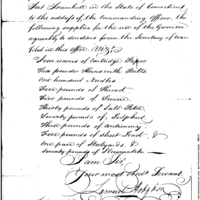 Fort Trumbull in the State of Connecticut
to the address of the Commanding Officer, the
following supplies for the use of the Garrison
agreeably to directions from the Secretary of War
filed in this Office. (Viz.)
Four reams of Cartridge Paper
Ten powder Horns with Belts
One hundred Needles
Five pounds of Thread
Five pounds of Twine
Thirty pounds of Salt Petre
Twenty pounds of Sulphur
Three pounds of antimony
Five pounds of Sheet Lead &
One pair of Stilyards, &
Twenty pounds of
I am Sir,
Your most obedt Servant
Samuel Hodgdon